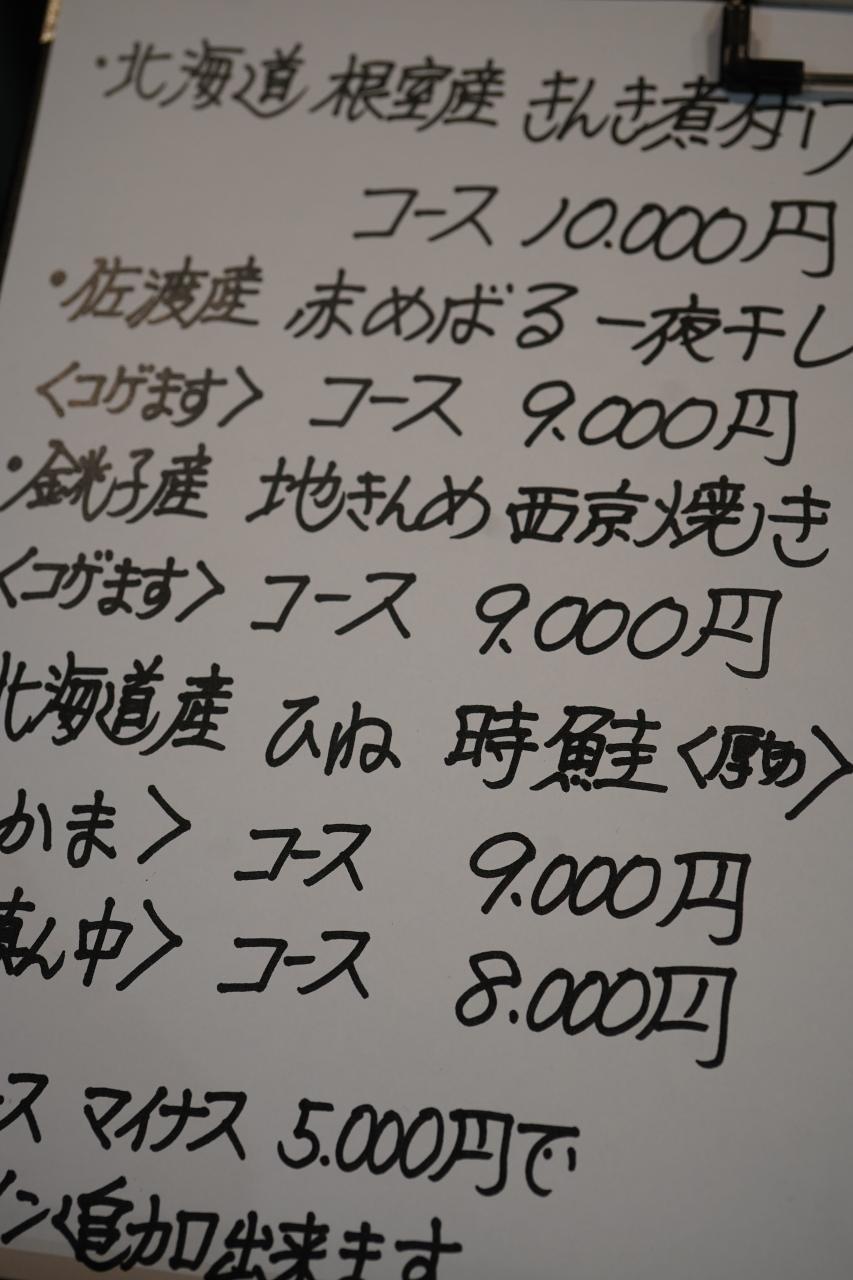 ・北海道 根室産 きんき煮付け
コース 10.000円
・佐渡産 赤めばる一夜干し
〈コゲます〉 コース 9.000円
・銚子産 地きんめ西京焼き
〈コゲます〉 コース 9.000円
北海道産 ひね 時鮭〈厚切〉
かま〉 コース 9.000円
真ん中〉 コース 8.000円
ース マイナス 5.000円で
イン〈追加出来ます